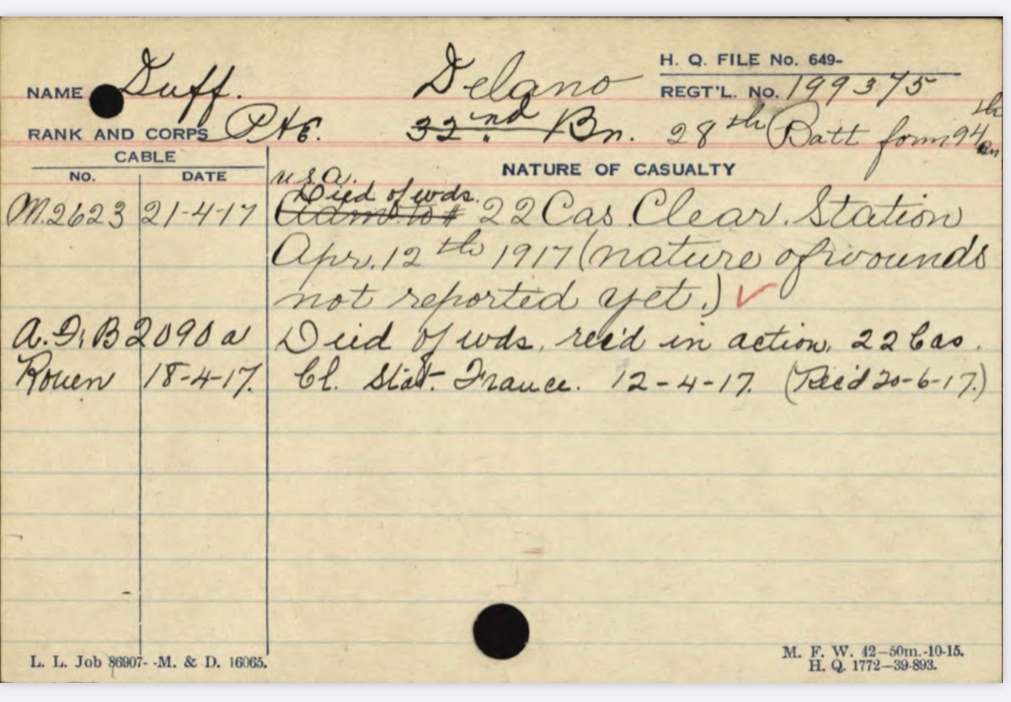 H. Q. FILE No. 649-
NAME Duff. Delano REGT'L. No. 199375
RANK AND CORPS Pte. 32nd Bn. 28th Batt form 94th Bn
CABLE
NO. DATE NATURE OF CASUALTY
u.s.a.
Died of wds.
M.2623 21-4-17 Adm. to # 22 Cas. Clear. Station
Apr. 12th 1917 (nature of wounds
not reported yet.) ✓
A.F.B 2090a Died of wds. rec'd in action, 22 Cas.
Rouen 18-4-17. Cl. Stat. France. 12-4-17. (Rec'd 20-6-17.)
L. L. Job 86907- -M. & D. 16065.
M. F. W. 42—50m.-10-15.
H. Q. 1772—39-893.